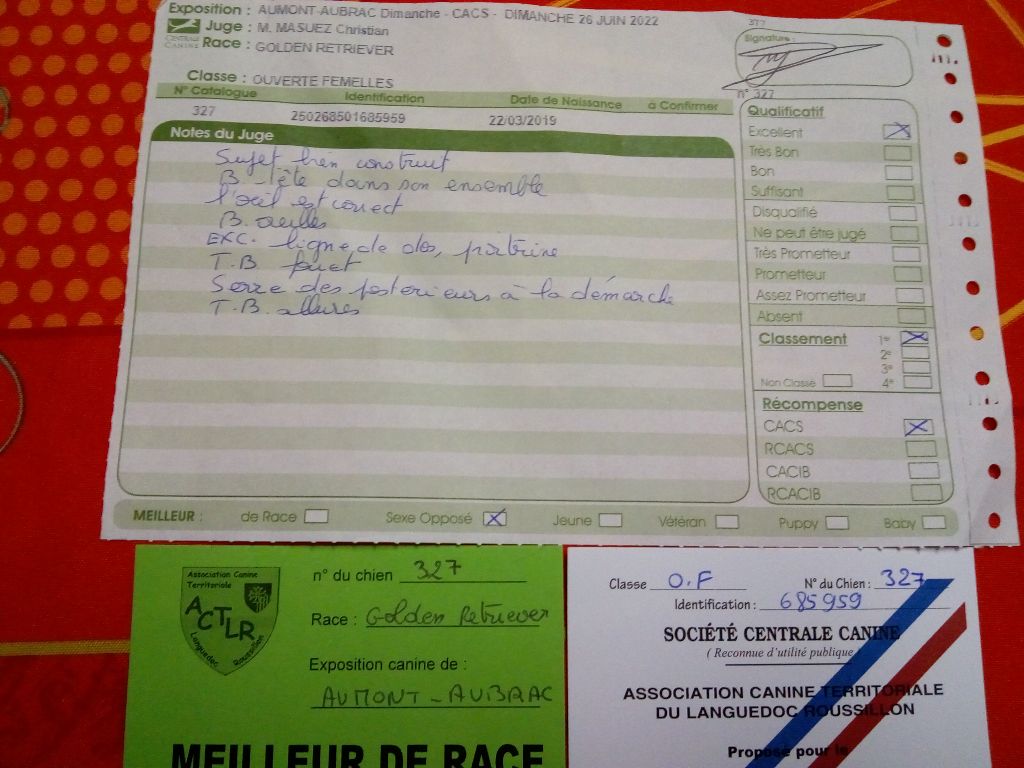 Exposition : AUMONT-AUBRAC Dimanche - CACS - DIMANCHE 26 JUIN 2022
Juge : M. MASUEZ Christian
CENTRALE CANINE Race : GOLDEN RETRIEVER
Classe : OUVERTE FEMELLES
N° Catalogue Identification Date de Naissance à Confirmer
327 250268501685959 22/03/2019
Notes du Juge
Sujet bien construit
B. tête dans son ensemble
l'oeil est correct
B. oreilles
EXC. ligne de dos, poitrine
T.B. fouet
Serre des posterieurs à la démarche
T.B. allures
377
Signature :
n° 327
Qualificatif
Excellent
Très Bon
Bon
Suffisant
Disqualifié
Ne peut être jugé
Très Prometteur
Prometteur
Assez Prometteur
Absent
Classement 1er
2e
3e
Non Classé 4e
Récompense
CACS
RCACS
CACIB
RCACIB
MEILLEUR : de Race Sexe Opposé Jeune Vétéran Puppy Baby
Association Canine
Territoriale
ACTLR
Languedoc Roussillon
n° du chien 327
Race : Golden Retriever
Exposition canine de :
AUMONT-AUBRAC
MEILLEUR DE RACE
Classe O.F N° du Chien : 327
Identification : 685959
SOCIÉTÉ CENTRALE CANINE
( Reconnue d'utilité publique )
ASSOCIATION CANINE TERRITORIALE
DU LANGUEDOC ROUSSILLON
Proposé pour le